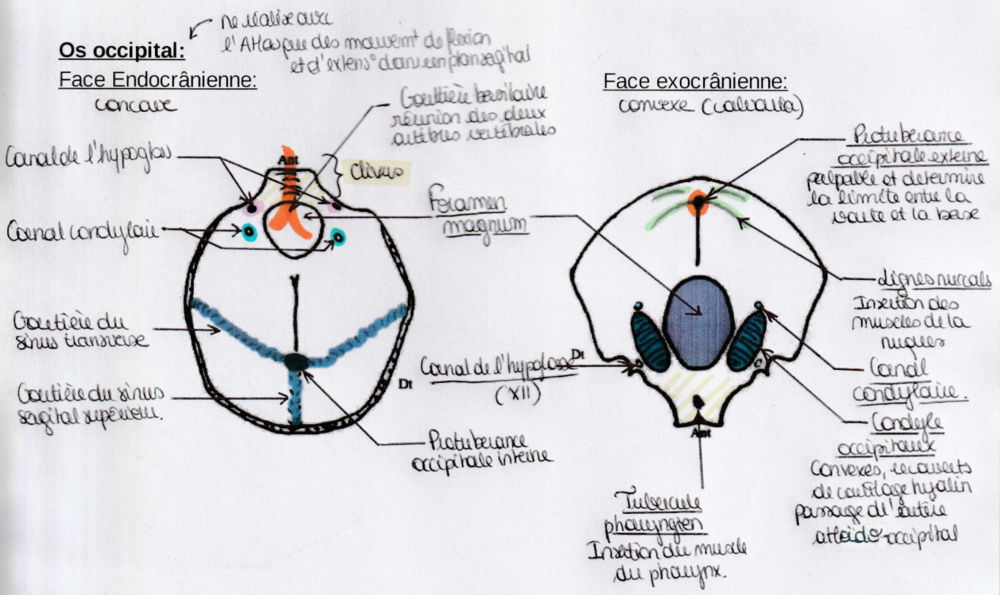 Os occipital:
ne réalise avec
l'Atlas que des mouvemt de flexion
et d'extens° dans un plan sagittal
Face Endocrânienne:
concave
Gouttière basilaire
réunion des deux
artères vertébrales
Canal de l'hypoglosse
Ant
Clivus
Canal condylaire
Foramen
magnum
Gouttière du
sinus transverse
Gouttière du sinus
sagital supérieur.
Dt
Protubérance
occipitale interne
Face exocrânienne:
convexe (calvaria)
Protubérance
occipitale externe
palpable et détermine
la limite entre la
voute et la base
Lignes nuccals
Insertion des
muscles de la
nuque
Canal
condylaire.
Canal de l'hypoglosse
(XII)
Dt
Condyle
occipitaux
Convexes, recouverts
de cartilage hyalin
passage de l'artère
atloïdo-occipital
Ant
Tubercule
pharyngien
Insertion du muscle
du pharynx.